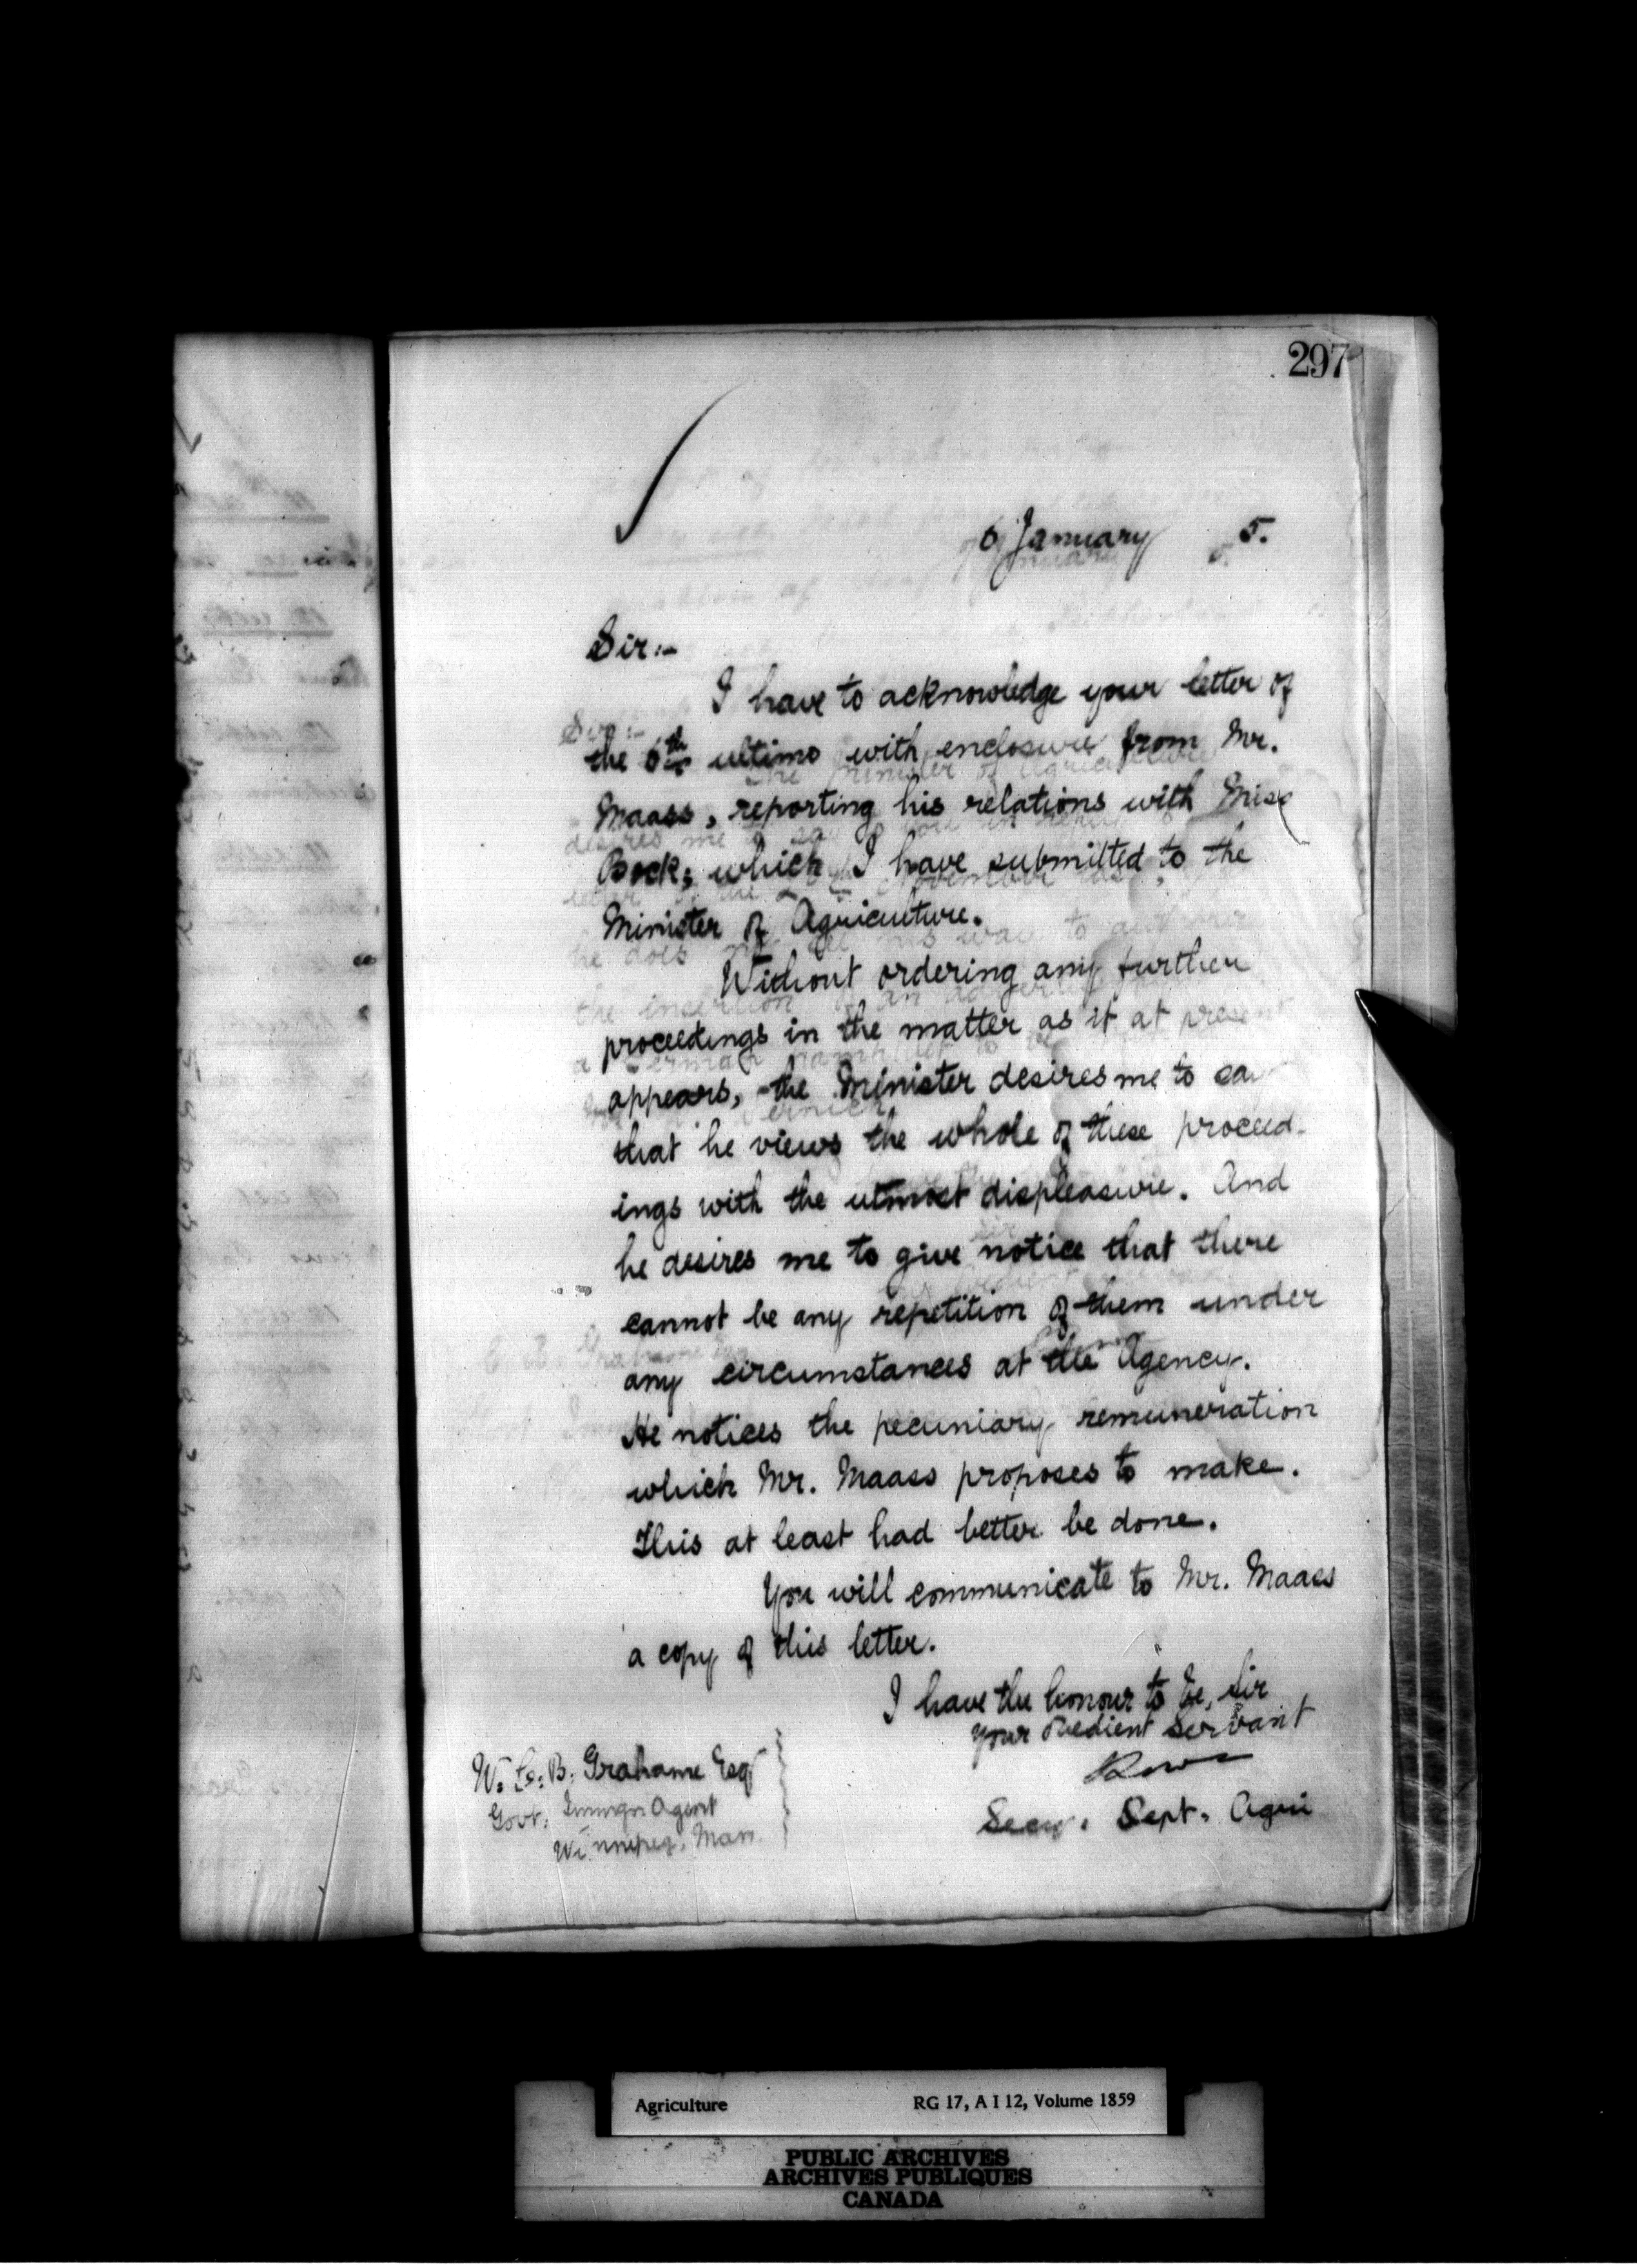 297
6 January 5.
Sir:-
I have to acknowledge your letter of
the 6th ultimo with enclosure from Mr.
Maass, reporting his relations with Miss
Bock, which I have submitted to the
Minister of Agriculture.
Without ordering any further
proceedings in the matter as it at present
appears, the Minister desires me to say
that he views the whole of these proceed-
ings with the utmost displeasure. And
he desires me to give notice that there
cannot be any repetition of them under
any circumstances at the Agency.
He notices the pecuniary remuneration
which Mr. Maass proposes to make.
This at least had better be done.
You will communicate to Mr. Maass
a copy of this letter.
I have the honour to be, Sir
your obedient servant
Secy. Dept. Agri
W. C. B. Grahame Esq
Govt. Immgn Agent
Winnipeg, Man.
Agriculture RG 17, A I 12, Volume 1859
PUBLIC ARCHIVES
ARCHIVES PUBLIQUES
CANADA